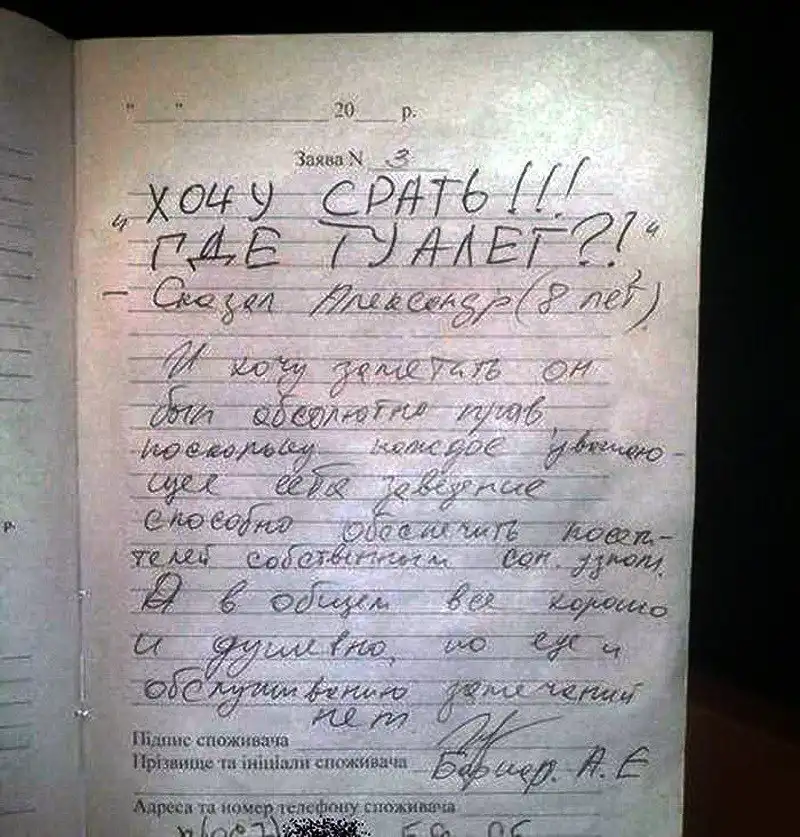 "___" ____________ 20 ___ р.
Заява N 3
"ХОЧУ СРАТЬ!!!
ГДЕ ТУАЛЕТ?!"
– Сказал Александр (8 лет).
И хочу заметить он
был абсолютно прав,
поскольку каждое уважаю-
щее себя заведение
способно обеспечить посети-
телей собственным сан. узлом.
А в общем все хорошо
и душевно, по еде и
обслуживанию замечаний
нет
Підпис споживача
Прізвище та ініціали споживача А. Е
Адреса та номер телефону споживача
р.